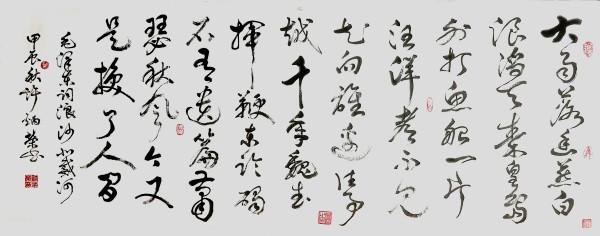 大雨落幽燕白
浪滔天秦皇島
外打魚船一片
汪洋都不見
知向誰边往事
越千年魏武
揮鞭东临碣
石有遗篇蕭
瑟秋风今又
是换了人间
毛泽东词浪沙北戴河
甲辰秋许炳榮书